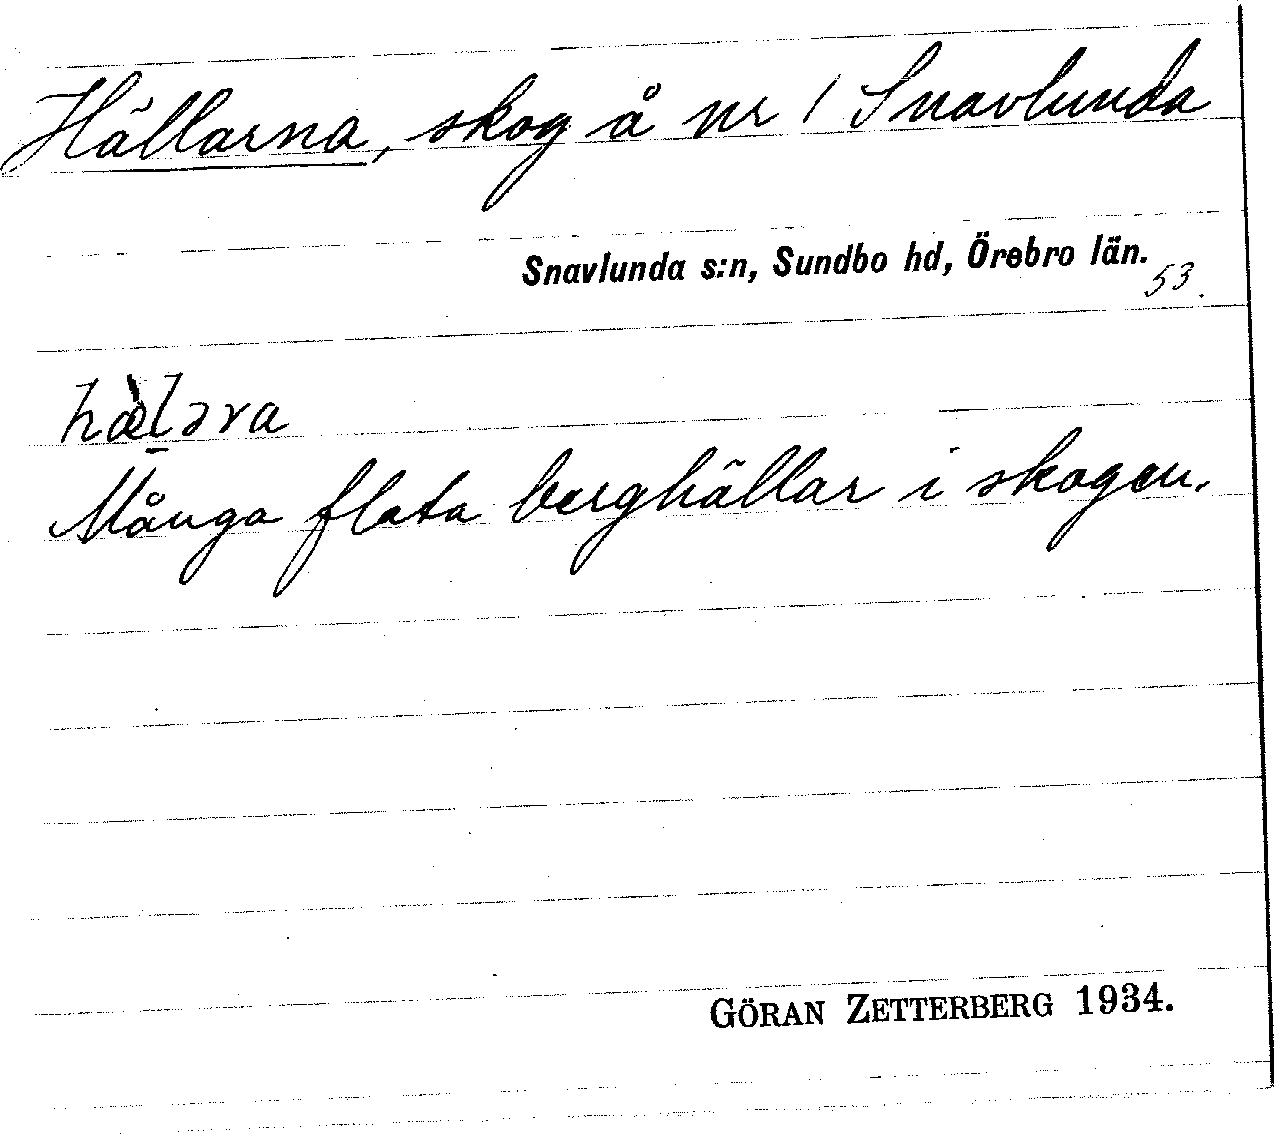 Hällarna, skog å nr 1 Snavlunda
Snavlunda s:n, Sundbo hd, Örebro län.
53.
hæ̀l̠ɔra
Många flata berghällar i skogen.
GÖRAN ZETTERBERG 1934.